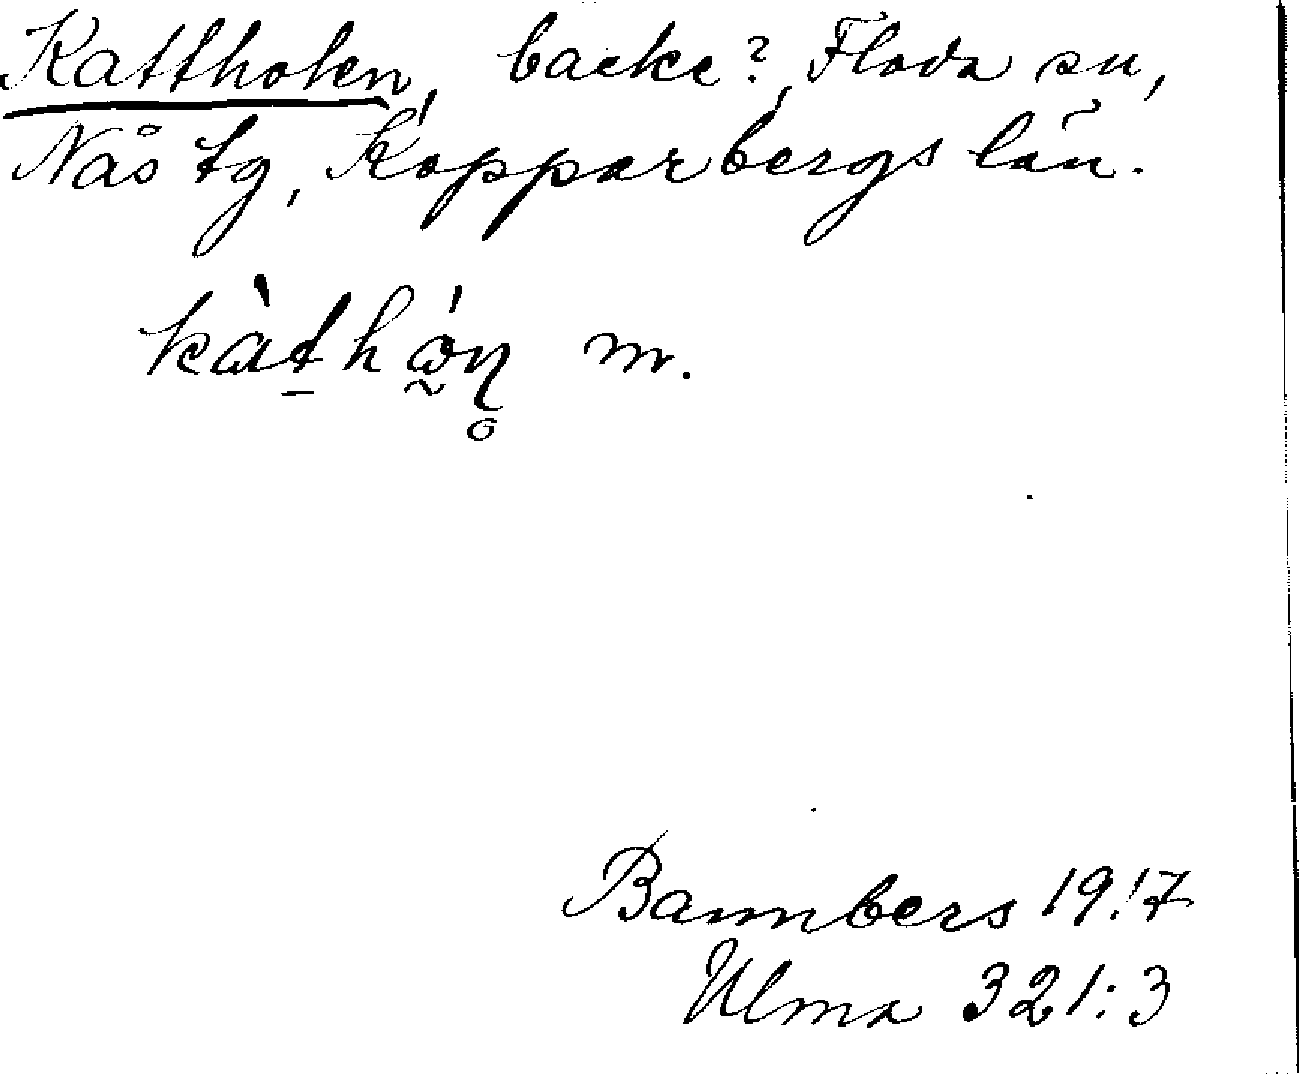 Kattholen, backe?, Floda sn,
Nås tg, Kopparbergs län.
m.
Bannbers 1917
Ulma 321:3